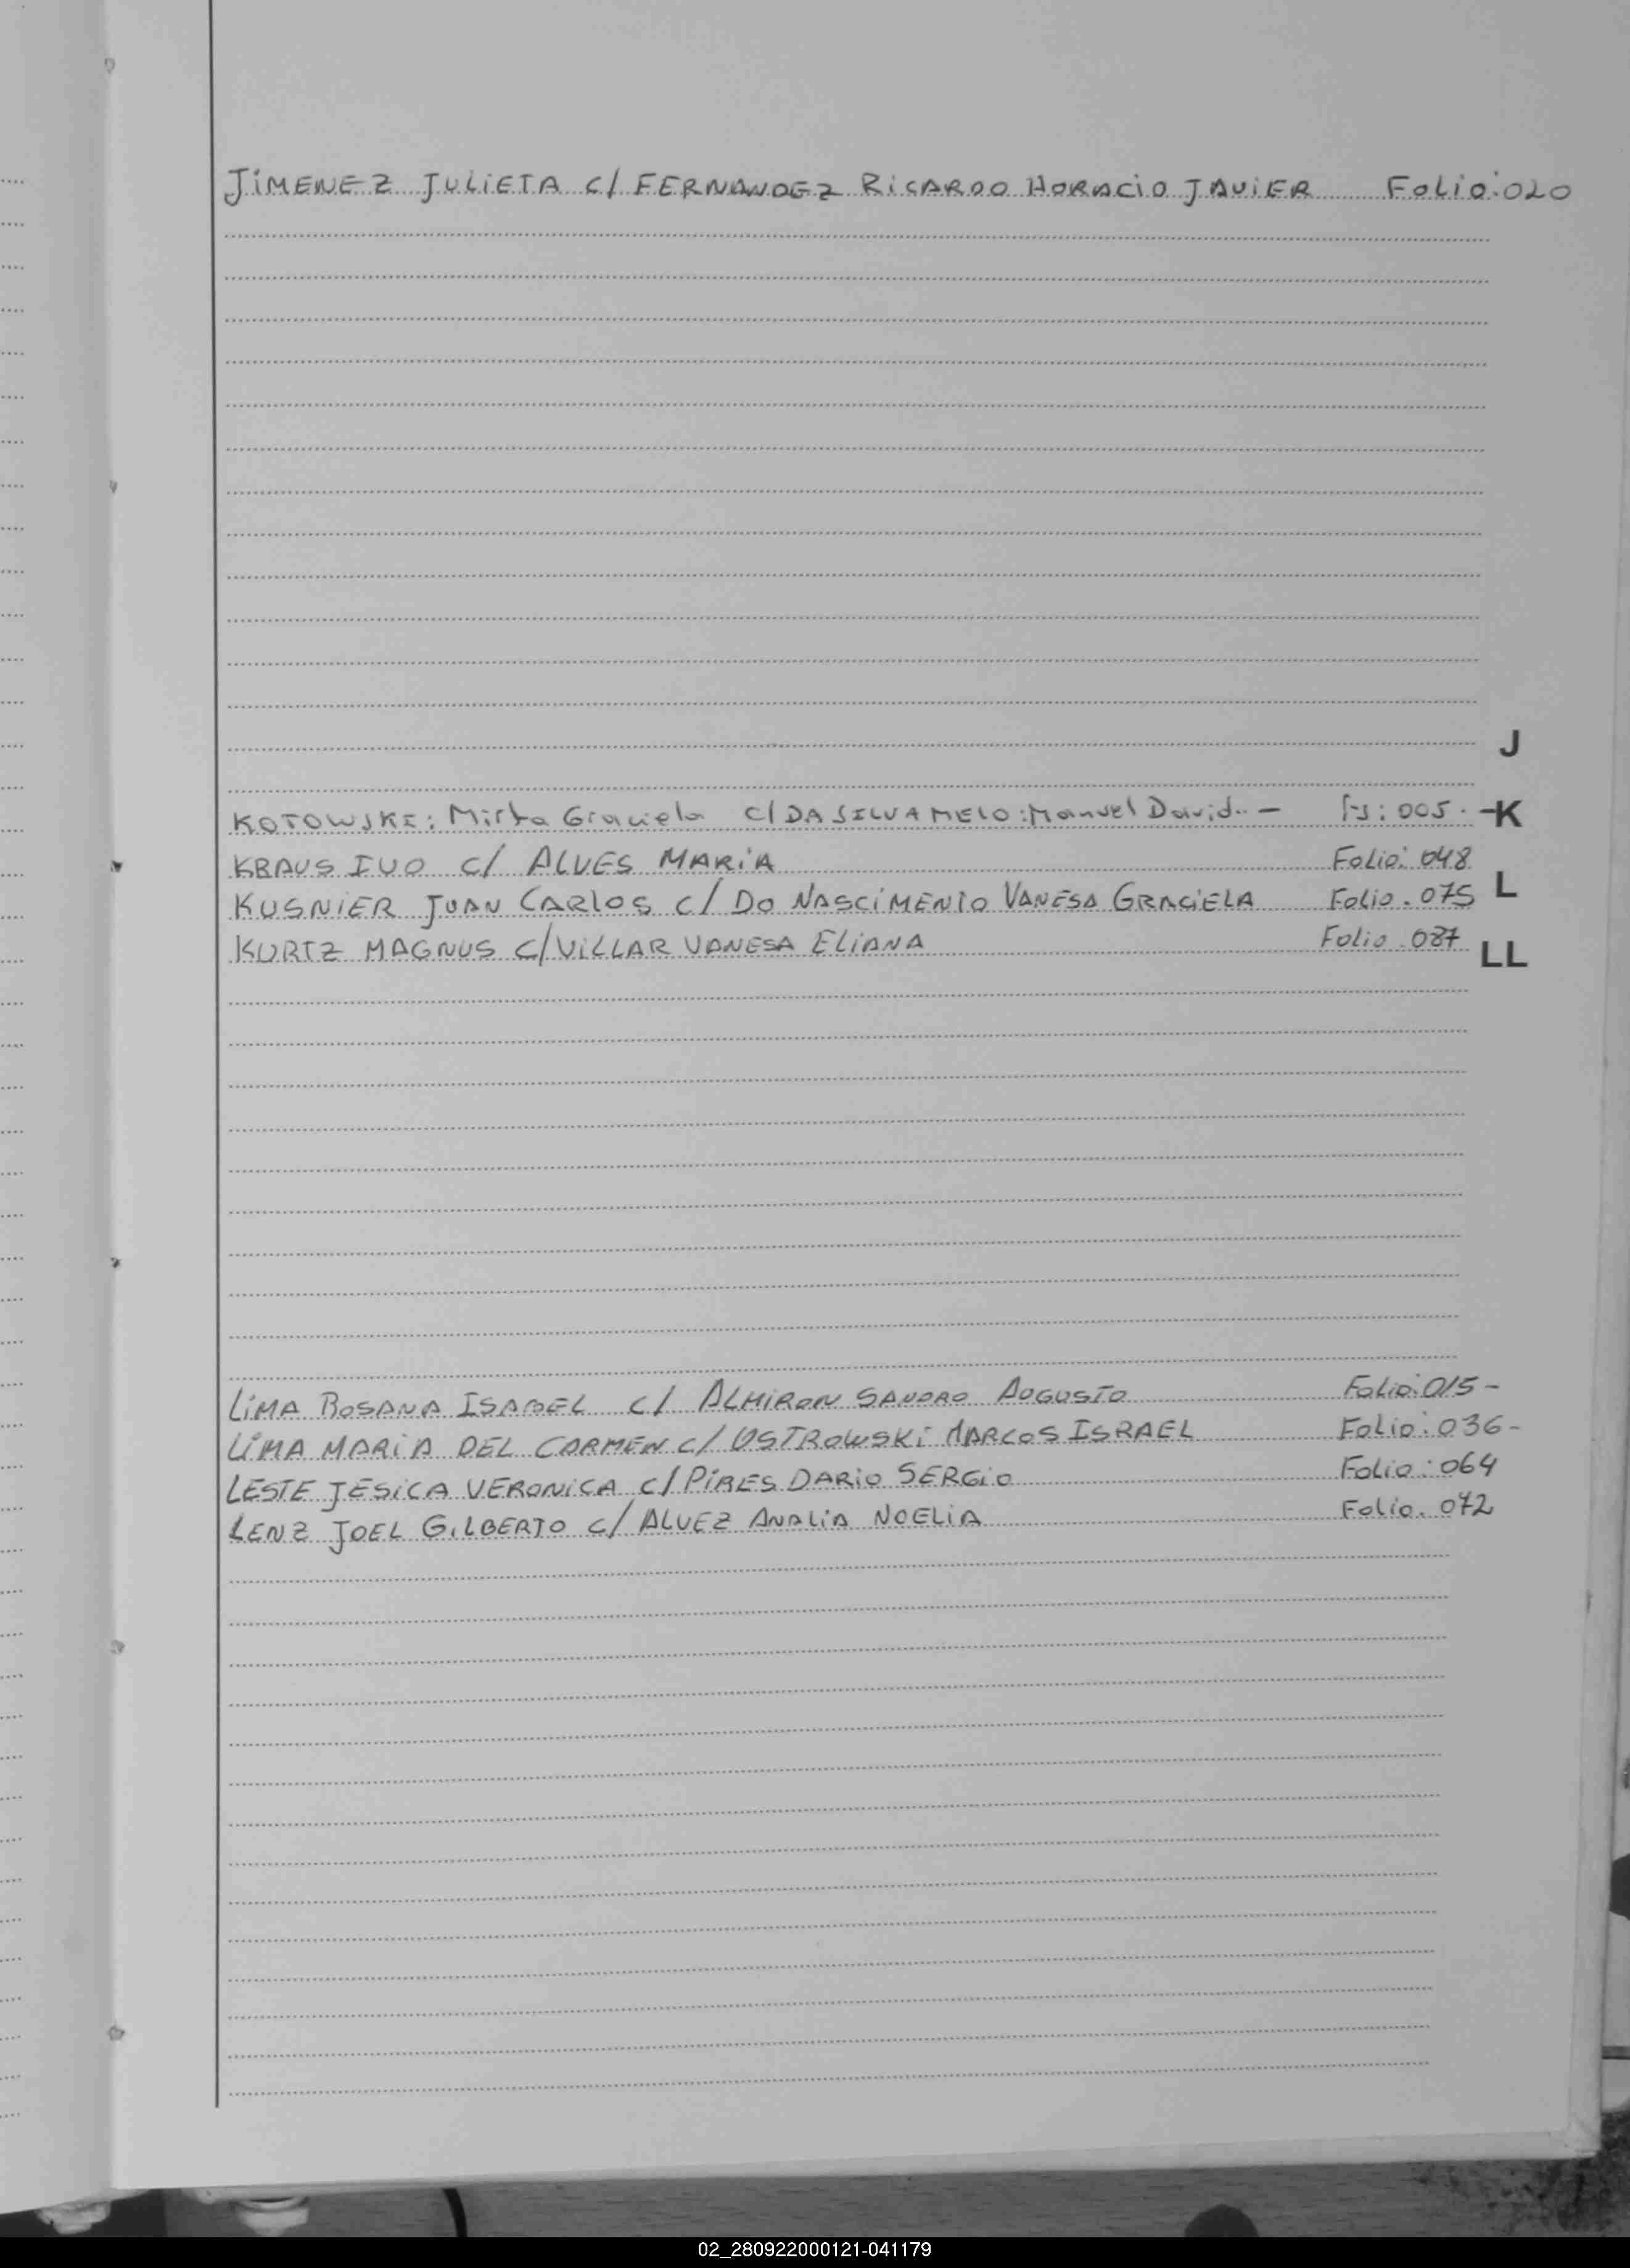 JIMENEZ JULIETA C/ FERNANDEZ RICARDO HORACIO JAVIER Folio: 020
J
KOTOWSKI: Mirta Graciela C/ DA SILVA MELO: Manuel David. - Fs: 005. - K
KRAUS IVO C/ ALVES MARIA Folio: 048
L
KUSNIER JUAN CARLOS C/ DO NASCIMENTO VANESA GRACIELA Folio. 075
KURTZ MAGNUS C/ VILLAR VANESA ELIANA Folio 087
LL
LIMA ROSANA ISABEL C/ ALMIRON SANDRO AUGUSTO Folio: 015 -
LIMA MARIA DEL CARMEN C/ OSTROWSKI MARCOS ISRAEL Folio: 036 -
LESTE JESICA VERONICA C/ PIRES DARIO SERGIO Folio: 064
LENZ JOEL GILBERTO C/ ALVEZ ANALIA NOELIA Folio. 072
02_280922000121-041179